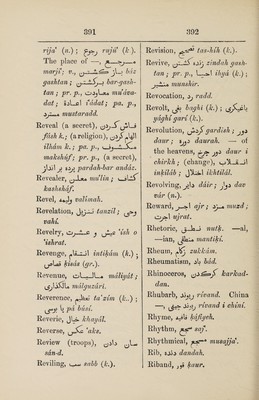 391
392
rijû' (n.) ; رجوع rujû' (k.).
The place of —, مرجع
marji'; n., باز گشتن baz
gashtan ; برگشتن bar-gash-
tan ; pr. p., معاودت mu'âva-
dat ; اعادت i'âdat ; pa. p.,
مسترد mustaradd.
Reveal (a secret), فاش کردن
fâsh k.; (a religion), الهام کردن
ilhâm k. ; pa. p., مکشوف
makshûf ; pr. p., (a secret),
پرده بر انداز pardah-bar andâz.
Revealer, معلن mu'lin ; کشاف
kashshâf.
Revel, ولیمه valîmah.
Revelation, تنزیل tanzîl ; وحی
vahî.
Revelry, عیش و عشرت 'ish o
'ishrat.
Revenge, انتقام intiḳâm (k.) ;
قصاص ḳisâs (gr.).
Revenue, مالیات mâliyât ;
مالگذاری mâlguzârî.
Reverence, تعظیم ta'zîm (k.) ;
پا بوسی pâ bôsî.
Reverie, خیال khayâl.
Reverse, عکس 'aks.
Review (troops), سان دادن
sân-d.
Reviling, سب sabb (k.).
Revision, تصحیح tas-hîh (k.).
Revive, زنده گشتن zindah gash-
tan ; pr. p., احیا ihyâ (k.) ;
منشر munshir.
Revocation, رد radd.
Revolt, بغی baghî (k.) ; یاغیگری
yâghî garî (k.).
Revolution, گردش gardish ; دور
daur ; دوره daurah. — of
the heavens, دور چرخ daur i
chirkh ; (change), انقلاب
inḳilâb ; اختلال ikhtilâl.
Revolving, دایر dâir ; دور وار dav
vâr (n.).
Reward, اجر ajr ; مزد muzd ;
اجرت ujrat.
Rhetoric, نطق nutḳ. —al,
—ian, منطقی mantiḳî.
Rheum, زکام zukâm (k.).
Rheumatism, باد bâd.
Rhinoceros, کرکدن karkad-
dan.
Rhubarb, ریوند rivand. China
—, ریوند چینی rîvand i chînî.
Rhyme, قافیه ḳâfiyeh.
Rhythm, سجع saj'.
Rhythmical, مسجع musajja'.
Rib, دنده dandah.
Riband, قور ḳour.